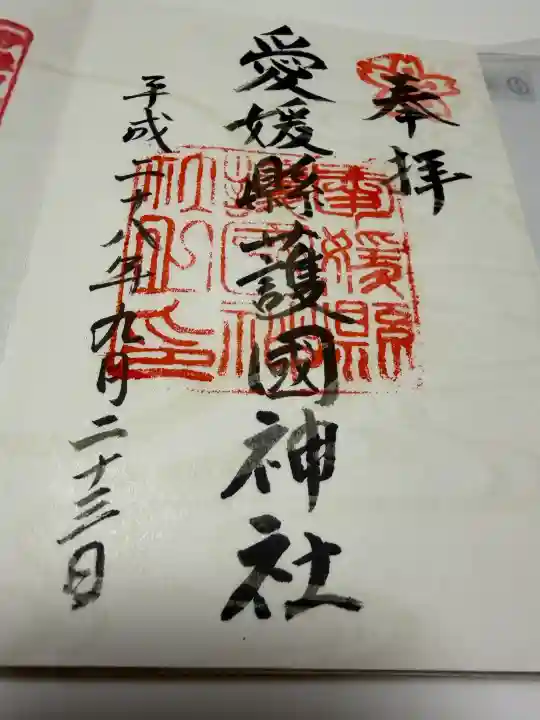 奉拝
愛媛縣護國神社
愛媛縣護國神社之印
平成二十八年九月二十三日